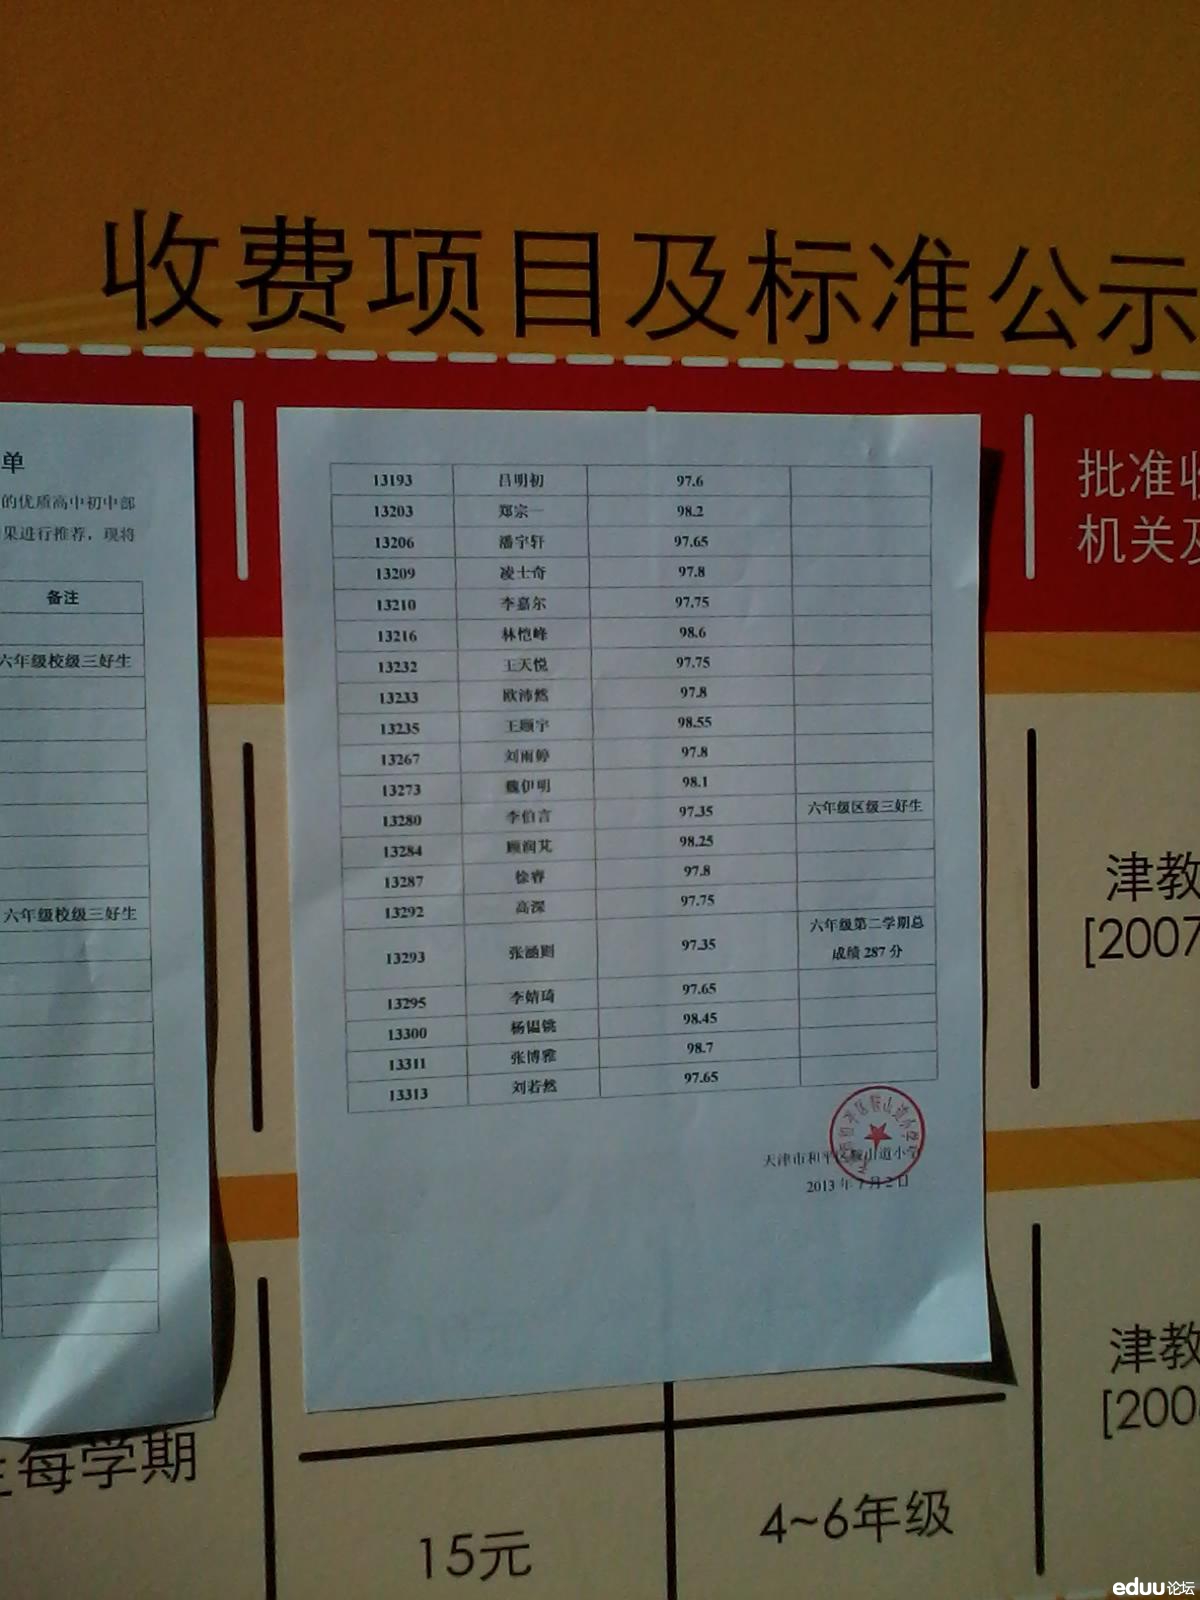 收费项目及标准公示
单
的优质高中初中部
果进行推荐，现将
备注
六年级校级三好生
六年级校级三好生
13193 吕明初 97.6
13203 郑宗一 98.2
13206 潘宇轩 97.65
13209 凌士奇 97.8
13210 李嘉尔 97.75
13216 林恺峰 98.6
13232 王天悦 97.75
13233 欧沛然 97.8
13235 王顾宇 98.55
13267 刘雨婷 97.8
13273 魏伊明 98.1
13280 李伯言 97.35 六年级区级三好生
13284 顾润艾 98.25
13287 徐睿 97.8
13292 高深 97.75
13293 张涵则 97.35 六年级第二学期总
成绩 287 分
13295 李婧琦 97.65
13300 杨韫铫 98.45
13311 张博雅 98.7
13313 刘若然 97.65
天津市和平区鞍山道小学
2013 年 7 月 2 日
批准收
机关及
津教
[2007
津教
[200
生每学期
15元
4~6年级
eduu论坛